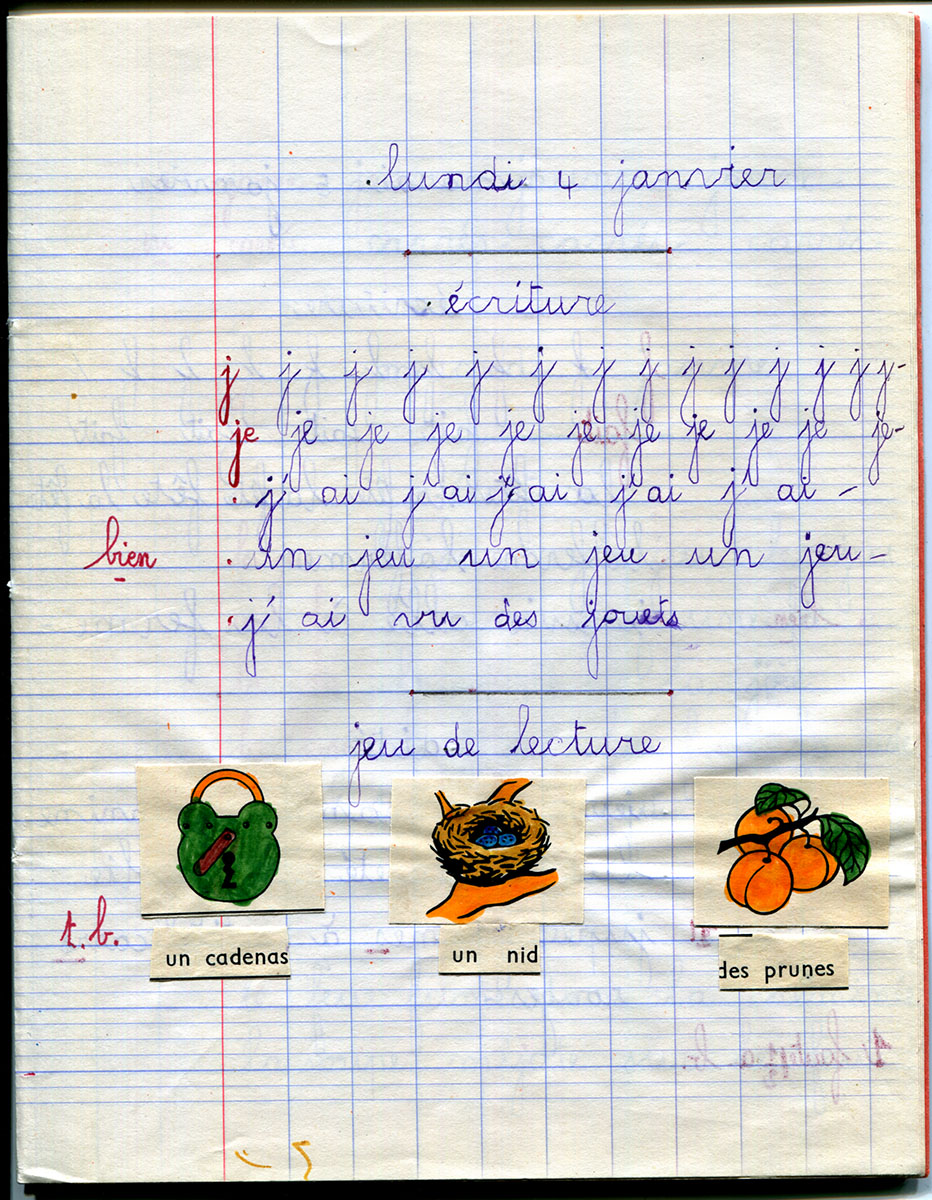 lundi 4 janvier
écriture
j j j j j j j j j j j j j j -
je je je je je je je je je je je -
j'ai j'ai j'ai j'ai j'ai -
bien un jeu un jeu un jeu -
j'ai vu des jouets
jeu de lecture
t.b.
un cadenas un nid des prunes